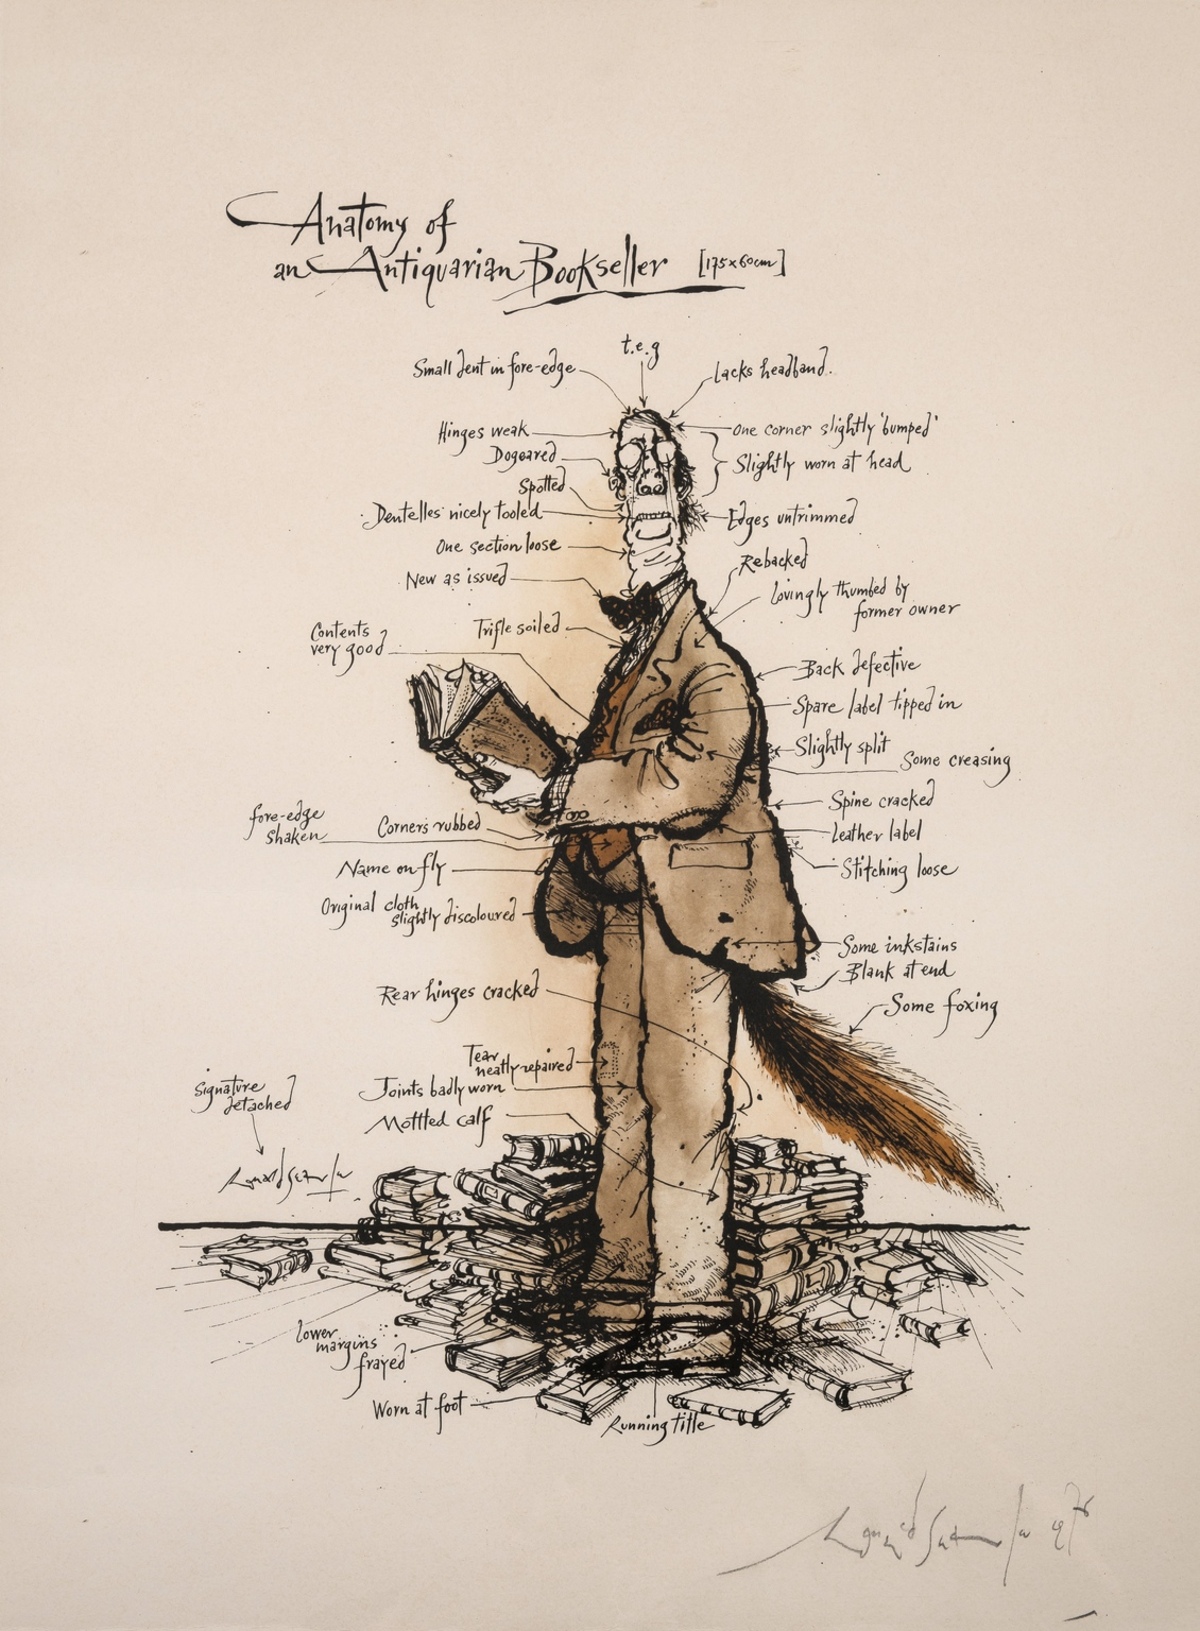 Anatomy of
an Antiquarian Bookseller [175x60cm]
t.e.g
Small dent in fore-edge
Lacks headband.
Hinges weak
One corner slightly 'bumped'
Dogeared
Slightly worn at head
Spotted
Dentelles nicely tooled
Edges untrimmed
One section loose
Rebacked
New as issued
Lovingly thumbed by
former owner
Contents
very good
Trifle soiled
Back defective
Spare label tipped in
Slightly split
Some creasing
Spine cracked
fore-edge
shaken
Corners rubbed
Leather label
Name on fly
Stitching loose
Original cloth
slightly discoloured
Some inkstains
Blank at end
Rear hinges cracked
Some foxing
Tear
neatly repaired
Joints badly worn
Signature
detached
Mottled calf
Ronald Searle
lower
margins
frayed
Worn at foot
Running title
Ronald Searle 1976